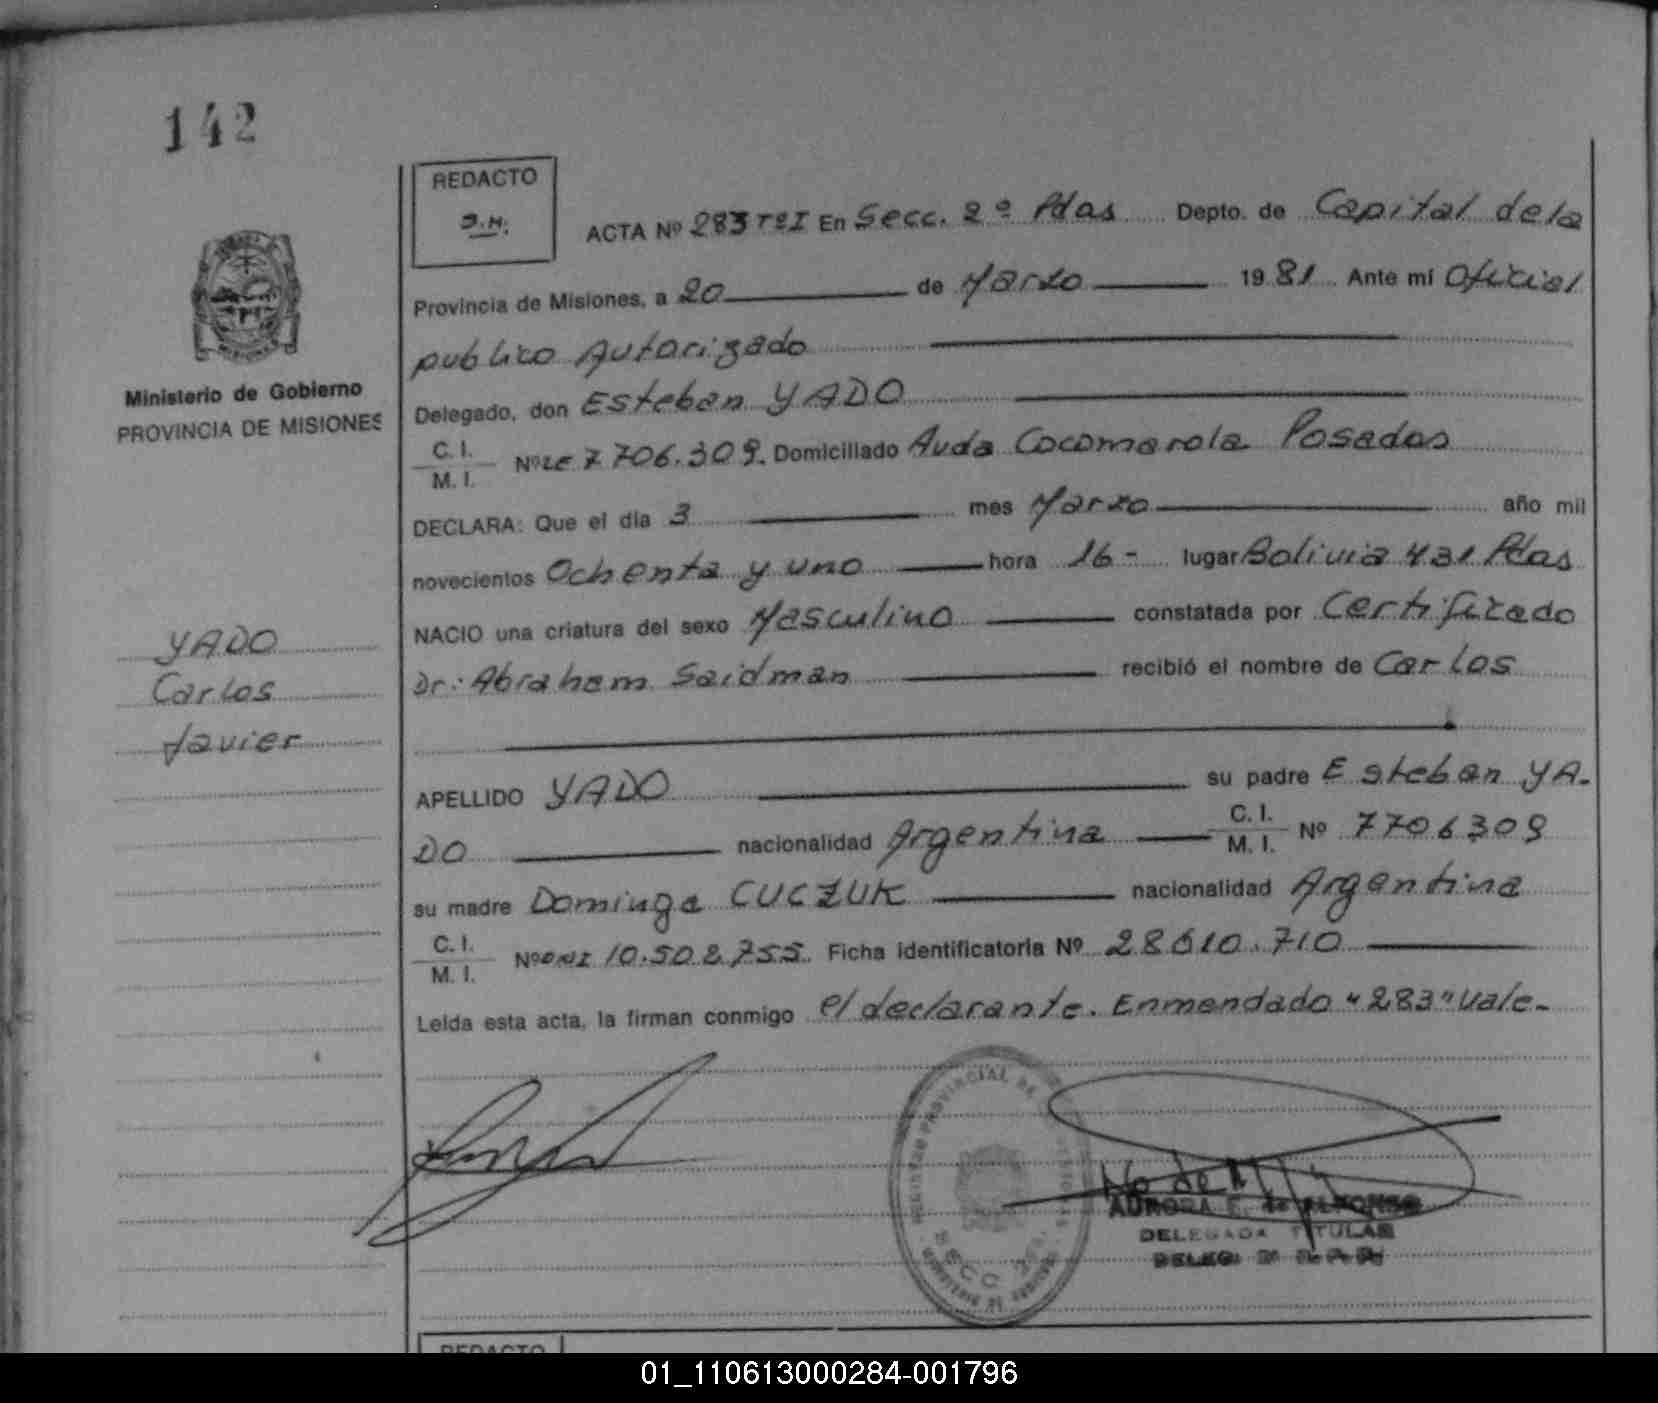 142
REDACTO
D.H.
ACTA Nº 283 TºI En Secc. 2º Pdas Depto. de Capital de la
Provincia de Misiones, a 20 de Marzo 1981 Ante mí Oficial
publico Autorizado
Delegado, don Esteban YADO
C. I.
M. I. Nº LE 7 706.309. Domiciliado Avda Cocomarola Posadas
DECLARA: Que el día 3 mes Marzo año mil
novecientos Ochenta y uno hora 16- lugar Bolivia 431 Pdas
NACIO una criatura del sexo Masculino constatada por Certificado
Dr: Abraham Saidman recibió el nombre de Carlos
APELLIDO YADO su padre Esteban YA-
DO nacionalidad Argentina C. I.
M. I. Nº 7706309
su madre Dominga CUCZUK nacionalidad Argentina
C. I.
M. I. Nº DNI 10.502.755. Ficha identificatoria Nº 28610.710
Leída esta acta, la firman conmigo el declarante. Enmendado "283" vale-
Ministerio de Gobierno
PROVINCIA DE MISIONES
YADO
Carlos
Javier
REGISTRO PROVINCIAL DE
SECC
AURORA E. de ALFONSO
DELEGADA TITULAR
REDACTO
01_110613000284-001796